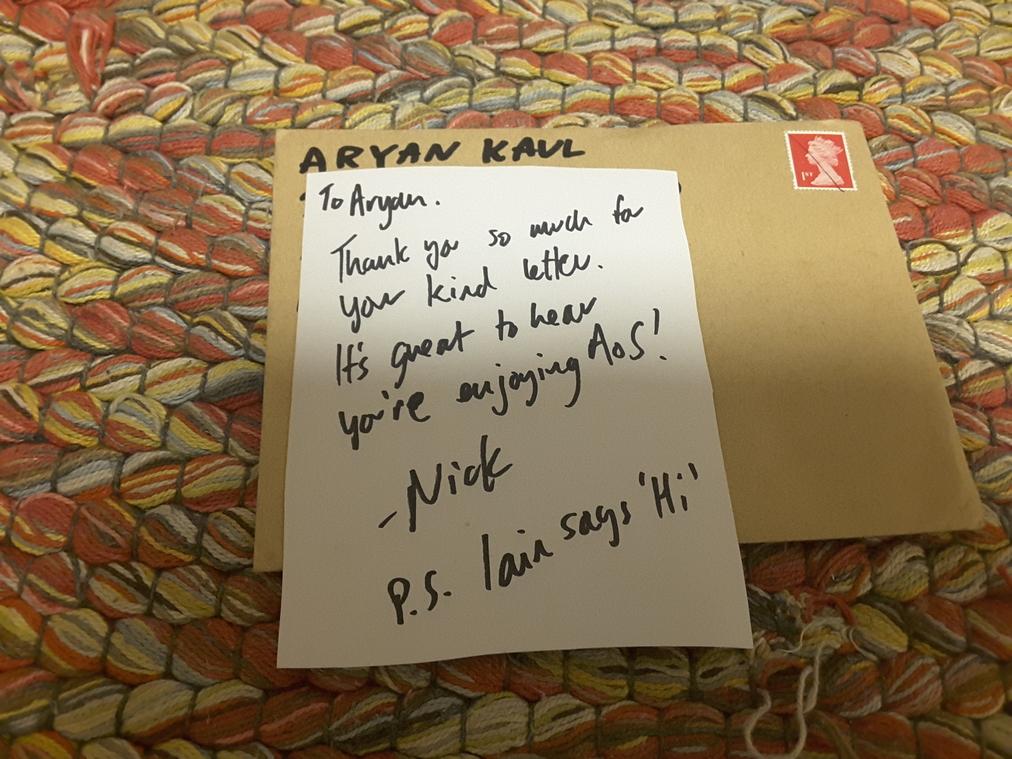 ARYAN KAUL
1ST
To Aryan.
Thank you so much for
your kind letter.
It's great to hear
you're enjoying AoS!
-Nick
P.S. Iain says 'Hi'